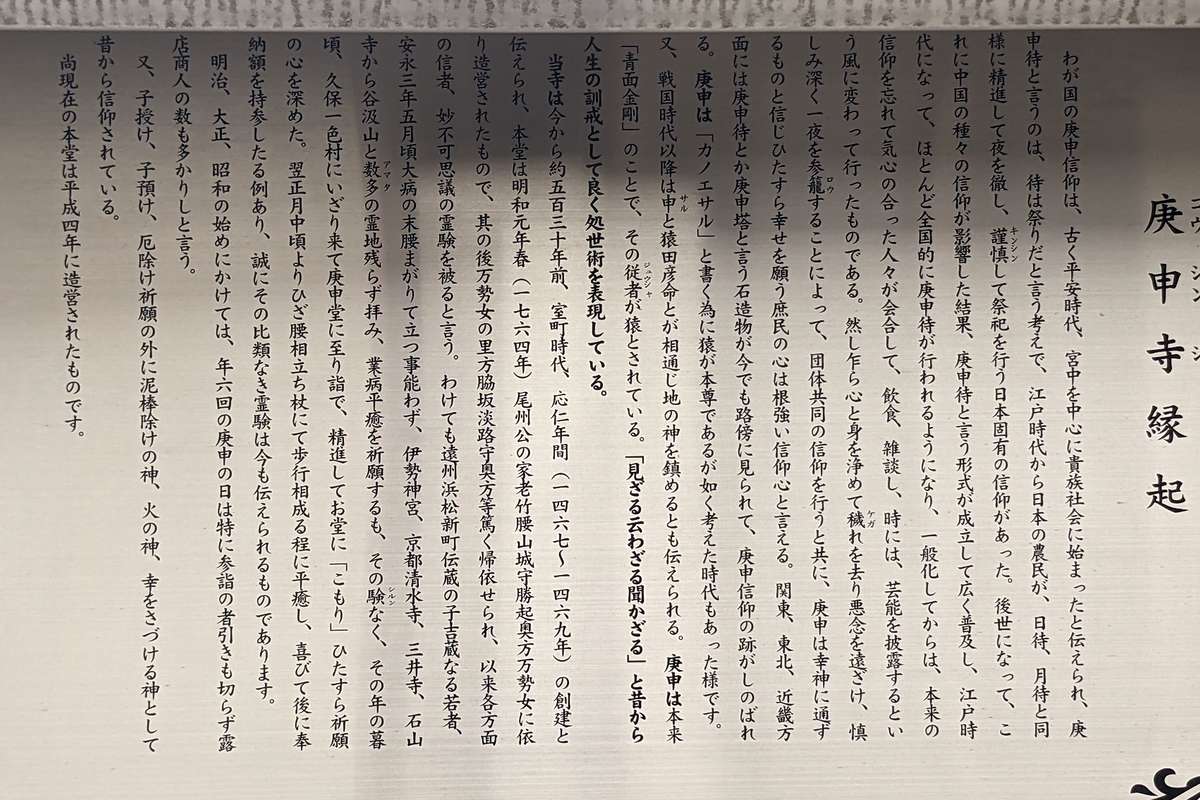 庚申寺縁起
わが国の庚申信仰は、古く平安時代、宮中を中心に貴族社会に始まったと伝えられ、庚
申待と言うのは、待は祭りだと言う考えで、江戸時代から日本の農民が、日待、月待と同
様に精進して夜を徹し、謹慎して祭祀を行う日本固有の信仰があった。後世になって、こ
れに中国の種々の信仰が影響した結果、庚申待と言う形式が成立して広く普及し、江戸時
代になって、ほとんど全国的に庚申待が行われるようになり、一般化してからは、本来の
信仰を忘れて気心の合った人々が会合して、飲食、雑談し、時には、芸能を披露するとい
う風に変わって行ったものである。然し乍ら心と身を浄めて穢れを去り悪念を遠ざけ、慎
しみ深く一夜を参籠することによって、団体共同の信仰を行うと共に、庚申は幸神に通ず
るものと信じひたすら幸せを願う庶民の心は根強い信仰心と言える。関東、東北、近畿方
面には庚申待とか庚申塔と言う石造物が今でも路傍に見られて、庚申信仰の跡がしのばれ
る。庚申は「カノエサル」と書く為に猿が本尊であるが如く考えた時代もあった様です。
又、戦国時代以降は申と猿田彦命とが相通じ地の神を鎮めるとも伝えられる。庚申は本来
「青面金剛」のことで、その従者が猿とされている。「見ざる云わざる聞かざる」と昔から
人生の訓戒として良く処世術を表現している。
当寺は今から約五百三十年前、室町時代、応仁年間（一四六七～一四六九年）の創建と
伝えられ、本堂は明和元年春（一七六四年）尾州公の家老竹腰山城守勝起奥方万勢女に依
り造営されたもので、其の後万勢女の里方脇坂淡路守奥方等篤く帰依せられ、以来各方面
の信者、妙不可思議の霊験を被ると言う。わけても遠州浜松新町伝蔵の子吉蔵なる若者、
安永三年五月頃大病の末腰まがりて立つ事能わず、伊勢神宮、京都清水寺、三井寺、石山
寺から谷汲山と数多の霊地残らず拝み、業病平癒を祈願するも、その験なく、その年の暮
頃、久保一色村にいざり来て庚申堂に至り詣で、精進してお堂に「こもり」ひたすら祈願
の心を深めた。翌正月中頃よりひざ腰相立ち杖にて歩行相成る程に平癒し、喜びて後に奉
納額を持参したる例あり、誠にその比類なき霊験は今も伝えられるものであります。
明治、大正、昭和の始めにかけては、年六回の庚申の日は特に参詣の者引きも切らず露
店商人の数も多かりしと言う。
又、子授け、子預け、厄除け祈願の外に泥棒除けの神、火の神、幸をさづける神として
昔から信仰されている。
尚現在の本堂は平成四年に造営されたものです。